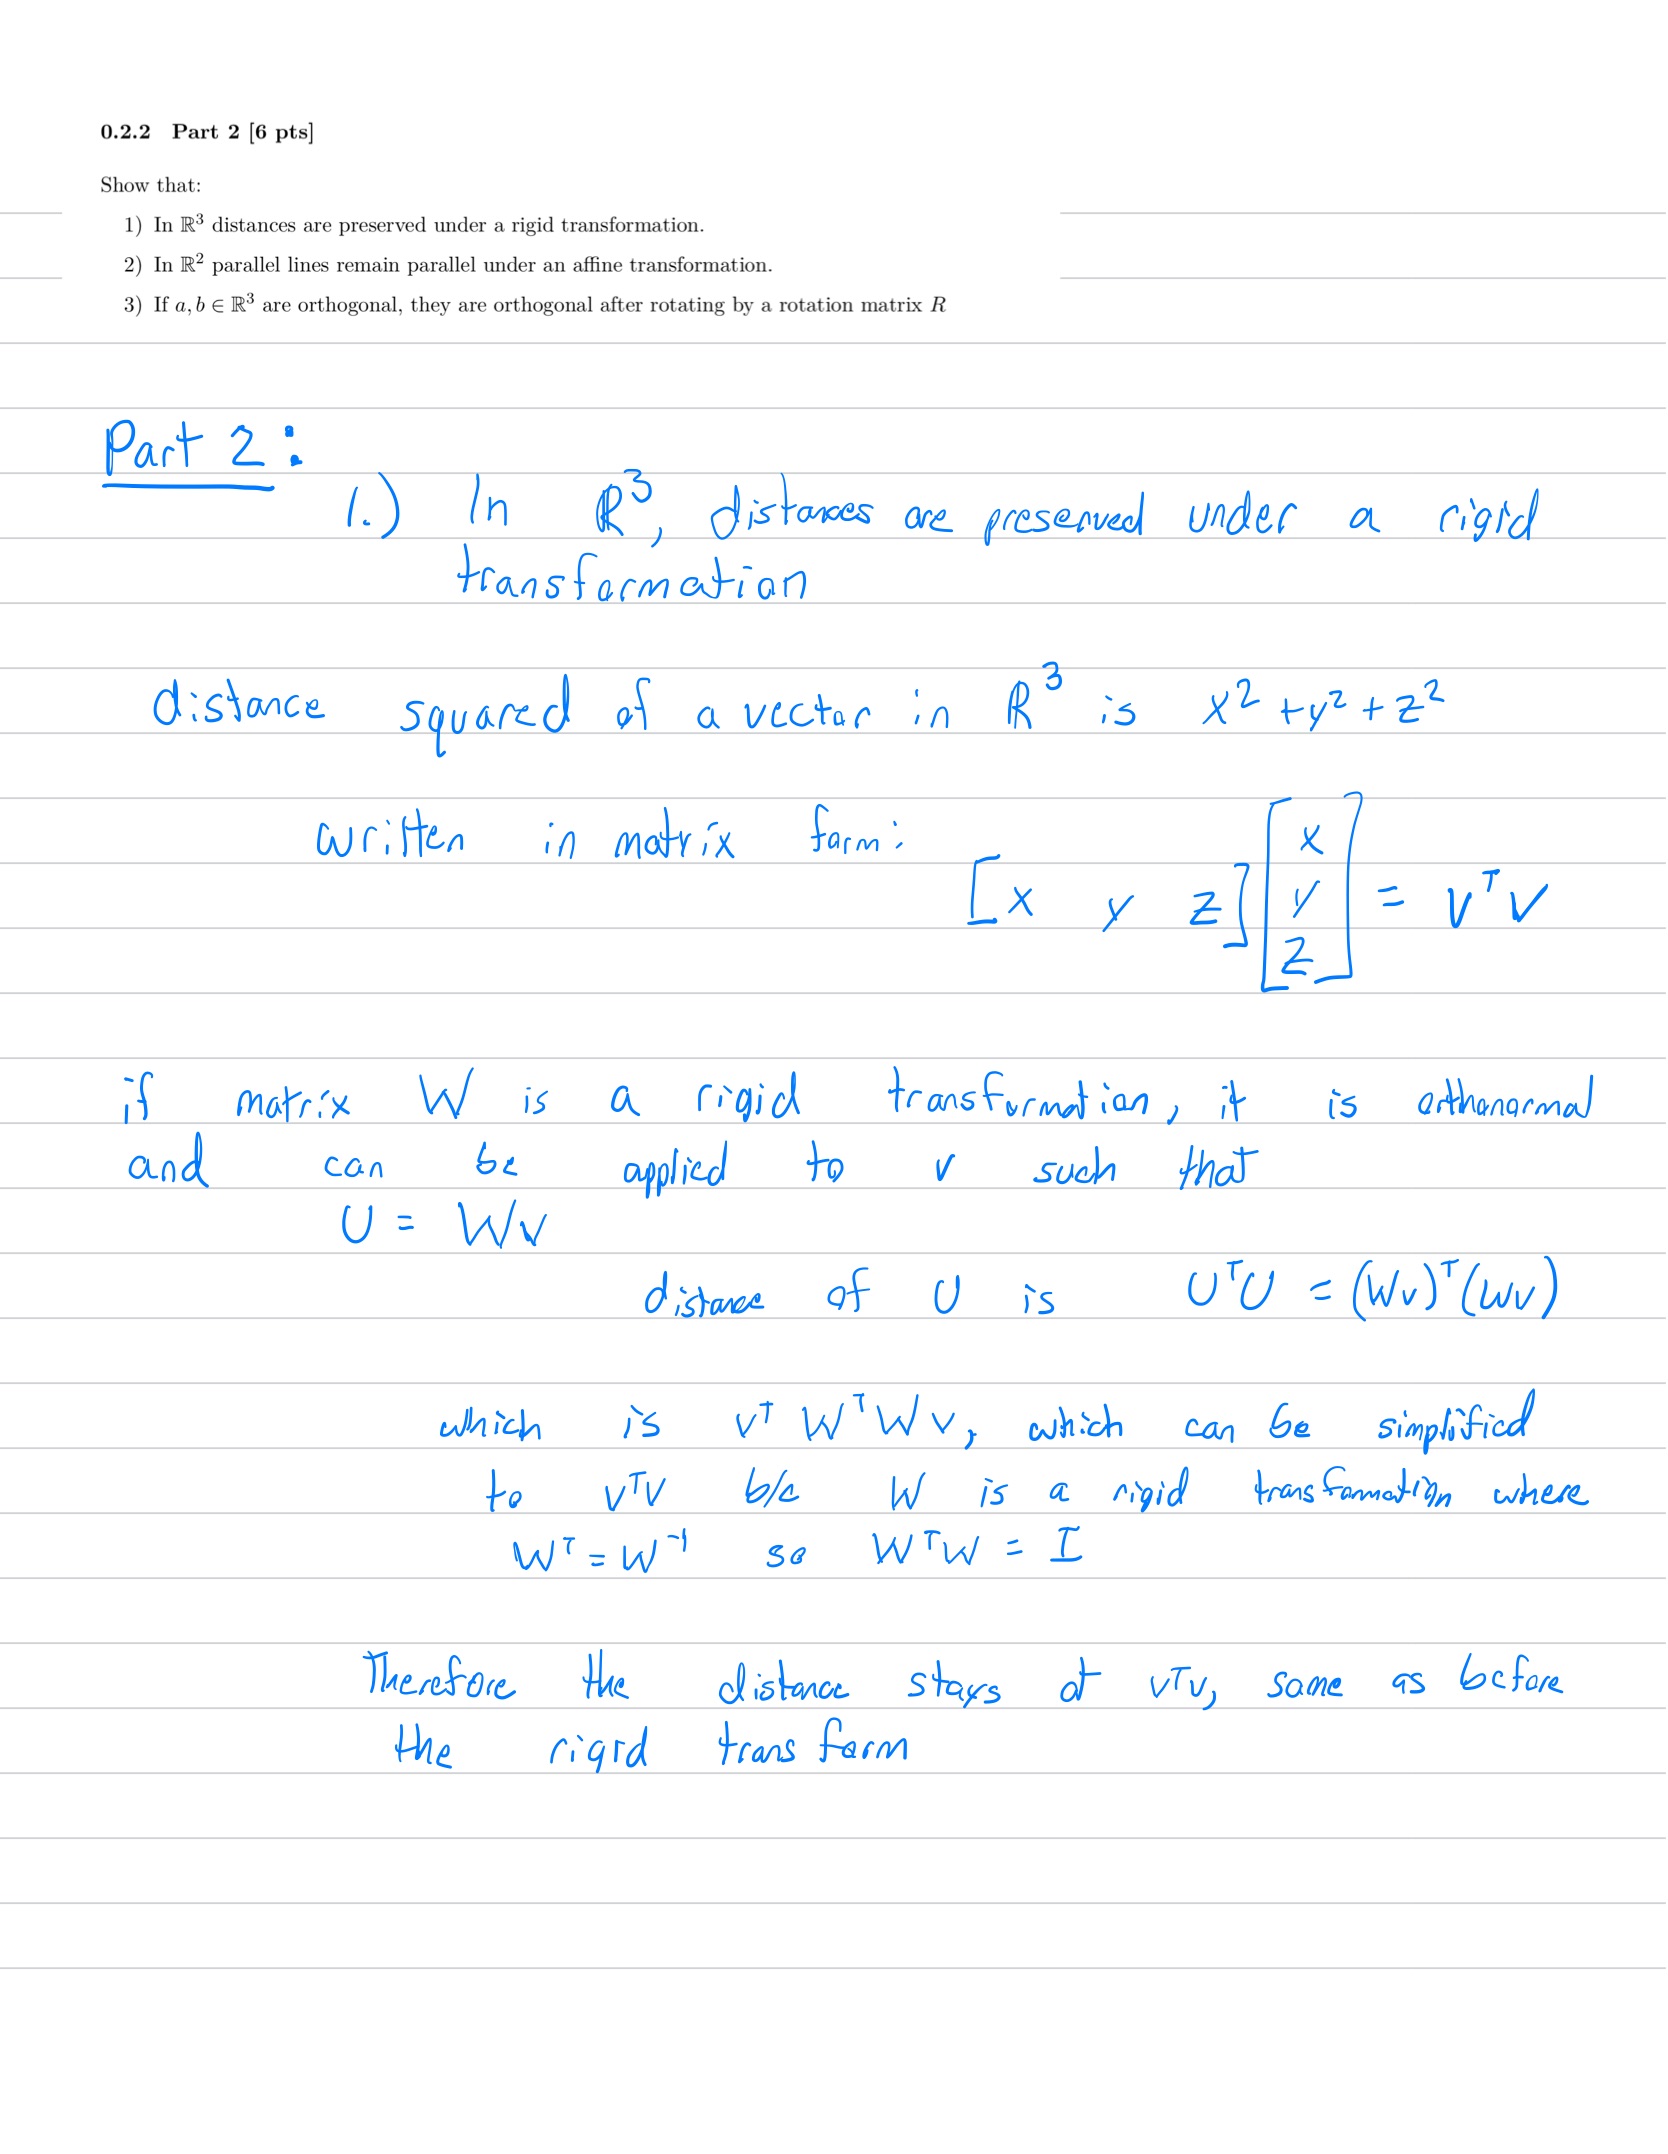 0.2.2 Part 2 [6 pts]
Show that:
1) In ℝ³ distances are preserved under a rigid transformation.
2) In ℝ² parallel lines remain parallel under an affine transformation.
3) If a, b ∈ ℝ³ are orthogonal, they are orthogonal after rotating by a rotation matrix R
Part 2:
1.) In ℝ³, distances are preserved under a rigid
transformation
distance squared of a vector in ℝ³ is x² + y² + z²
written in matrix form:
[x y z] [x y z] = vᵀv
if matrix W is a rigid transformation, it is orthonormal
and can be applied to v such that
U = Wv
distance of U is UᵀU = (Wv)ᵀ(Wv)
which is vᵀWᵀWv, which can be simplified
to vᵀv b/c W is a rigid transformation where
Wᵀ = W⁻¹ so WᵀW = I
Therefore the distance stays at vᵀv, same as before
the rigid transform